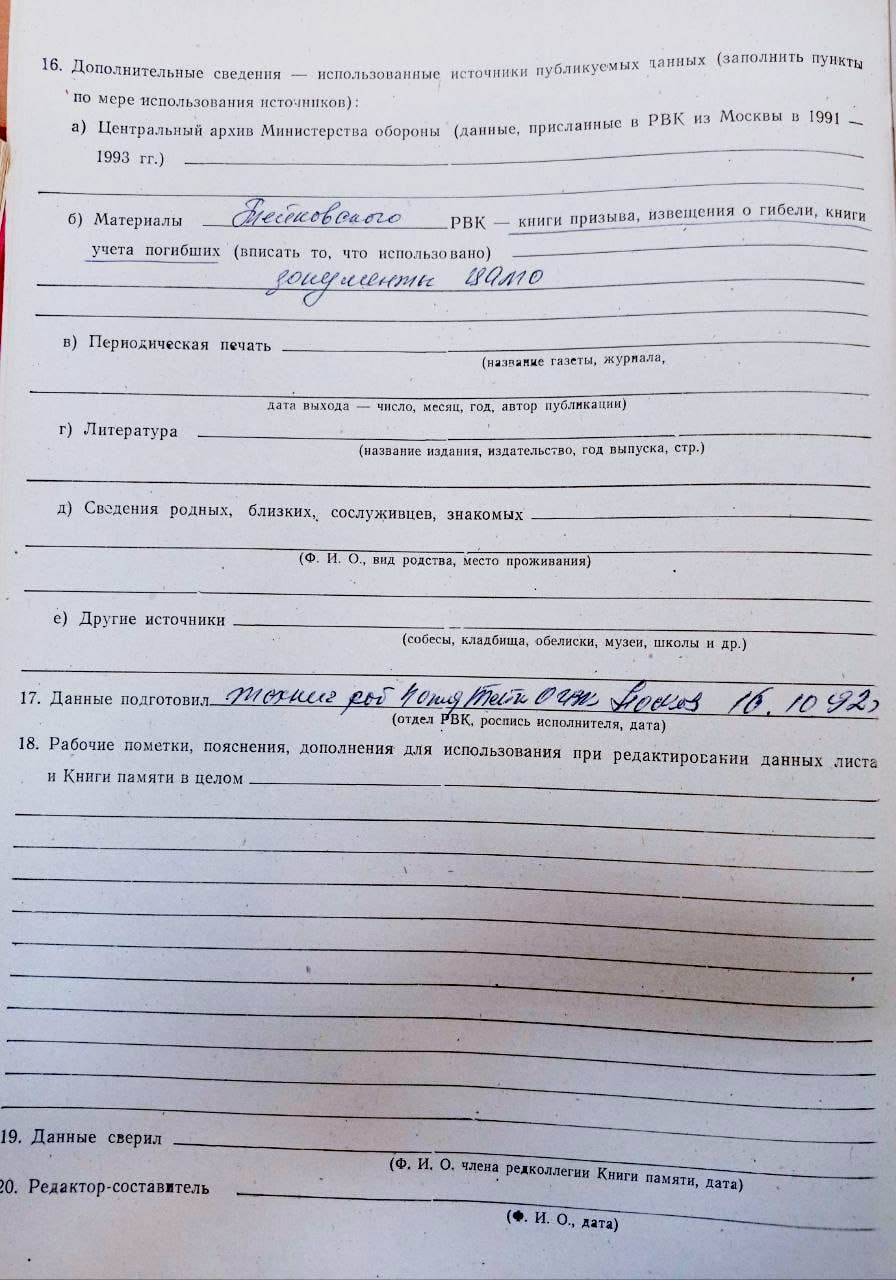 16. Дополнительные сведения — использованные источники публикуемых данных (заполнить пункты
по мере использования источников):
а) Центральный архив Министерства обороны (данные, присланные в РВК из Москвы в 1991 —
1993 гг.)
б) Материалы Тейковского РВК — книги призыва, извещения о гибели, книги
учета погибших (вписать то, что использовано)
документы ЦАМО
в) Периодическая печать
(название газеты, журнала,
дата выхода — число, месяц, год, автор публикации)
г) Литература
(название издания, издательство, год выпуска, стр.)
д) Сведения родных, близких, сослуживцев, знакомых
(Ф. И. О., вид родства, место проживания)
е) Другие источники
(собесы, кладбища, обелиски, музеи, школы и др.)
17. Данные подготовил 16.10 92г
(отдел РВК, роспись исполнителя, дата)
18. Рабочие пометки, пояснения, дополнения для использования при редактировании данных листа
и Книги памяти в целом
19. Данные сверил
(Ф. И. О. члена редколлегии Книги памяти, дата)
20. Редактор-составитель
(Ф. И. О., дата)